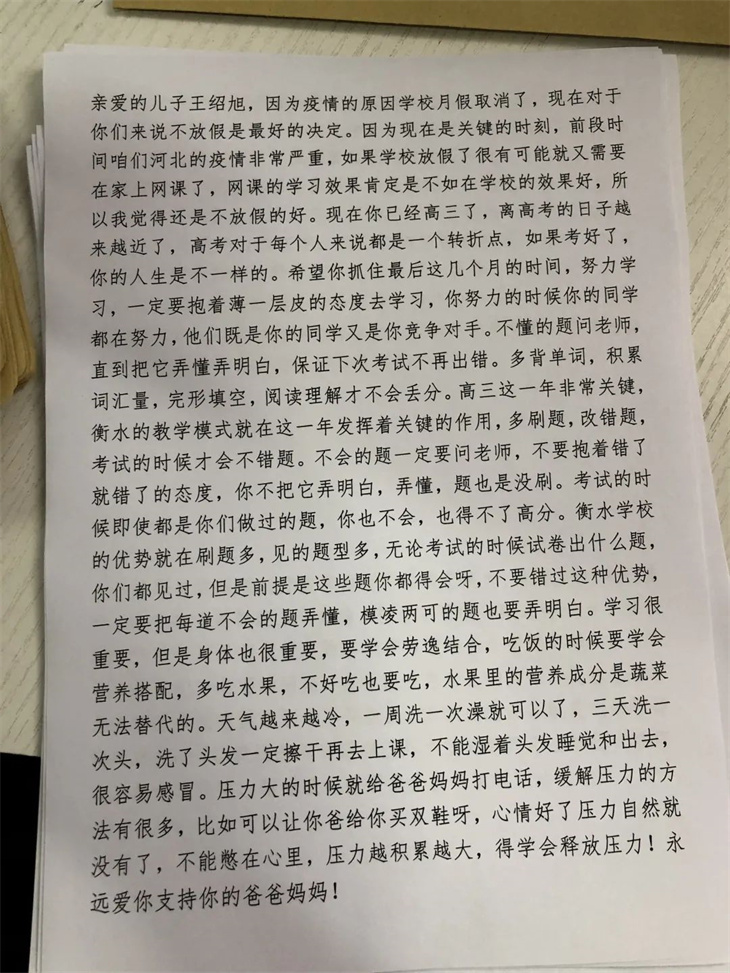 亲爱的儿子王绍旭，因为疫情的原因学校月假取消了，现在对于
你们来说不放假是最好的决定。因为现在是关键的时刻，前段时
间咱们河北的疫情非常严重，如果学校放假了很有可能就又需要
在家上网课了，网课的学习效果肯定是不如在学校的效果好，所
以我觉得还是不放假的好。现在你已经高三了，离高考的日子越
来越近了，高考对于每个人来说都是一个转折点，如果考好了，
你的人生是不一样的。希望你抓住最后这几个月的时间，努力学
习，一定要抱着薄一层皮的态度去学习，你努力的时候你的同学
都在努力，他们既是你的同学又是你竞争对手。不懂的题问老师，
直到把它弄懂弄明白，保证下次考试不再出错。多背单词，积累
词汇量，完形填空，阅读理解才不会丢分。高三这一年非常关键，
衡水的教学模式就在这一年发挥着关键的作用，多刷题，改错题，
考试的时候才会不错题。不会的题一定要问老师，不要抱着错了
就错了的态度，你不把它弄明白，弄懂，题也是没刷。考试的时
候即使都是你们做过的题，你也不会，也得不了高分。衡水学校
的优势就在刷题多，见的题型多，无论考试的时候试卷出什么题，
你们都见过，但是前提是这些题你都得会呀，不要错过这种优势，
一定要把每道不会的题弄懂，模凌两可的题也要弄明白。学习很
重要，但是身体也很重要，要学会劳逸结合，吃饭的时候要学会
营养搭配，多吃水果，不好吃也要吃，水果里的营养成分是蔬菜
无法替代的。天气越来越冷，一周洗一次澡就可以了，三天洗一
次头，洗了头发一定擦干再去上课，不能湿着头发睡觉和出去，
很容易感冒。压力大的时候就给爸爸妈妈打电话，缓解压力的方
法有很多，比如可以让你爸给你买双鞋呀，心情好了压力自然就
没有了，不能憋在心里，压力越积累越大，得学会释放压力！永
远爱你支持你的爸爸妈妈！